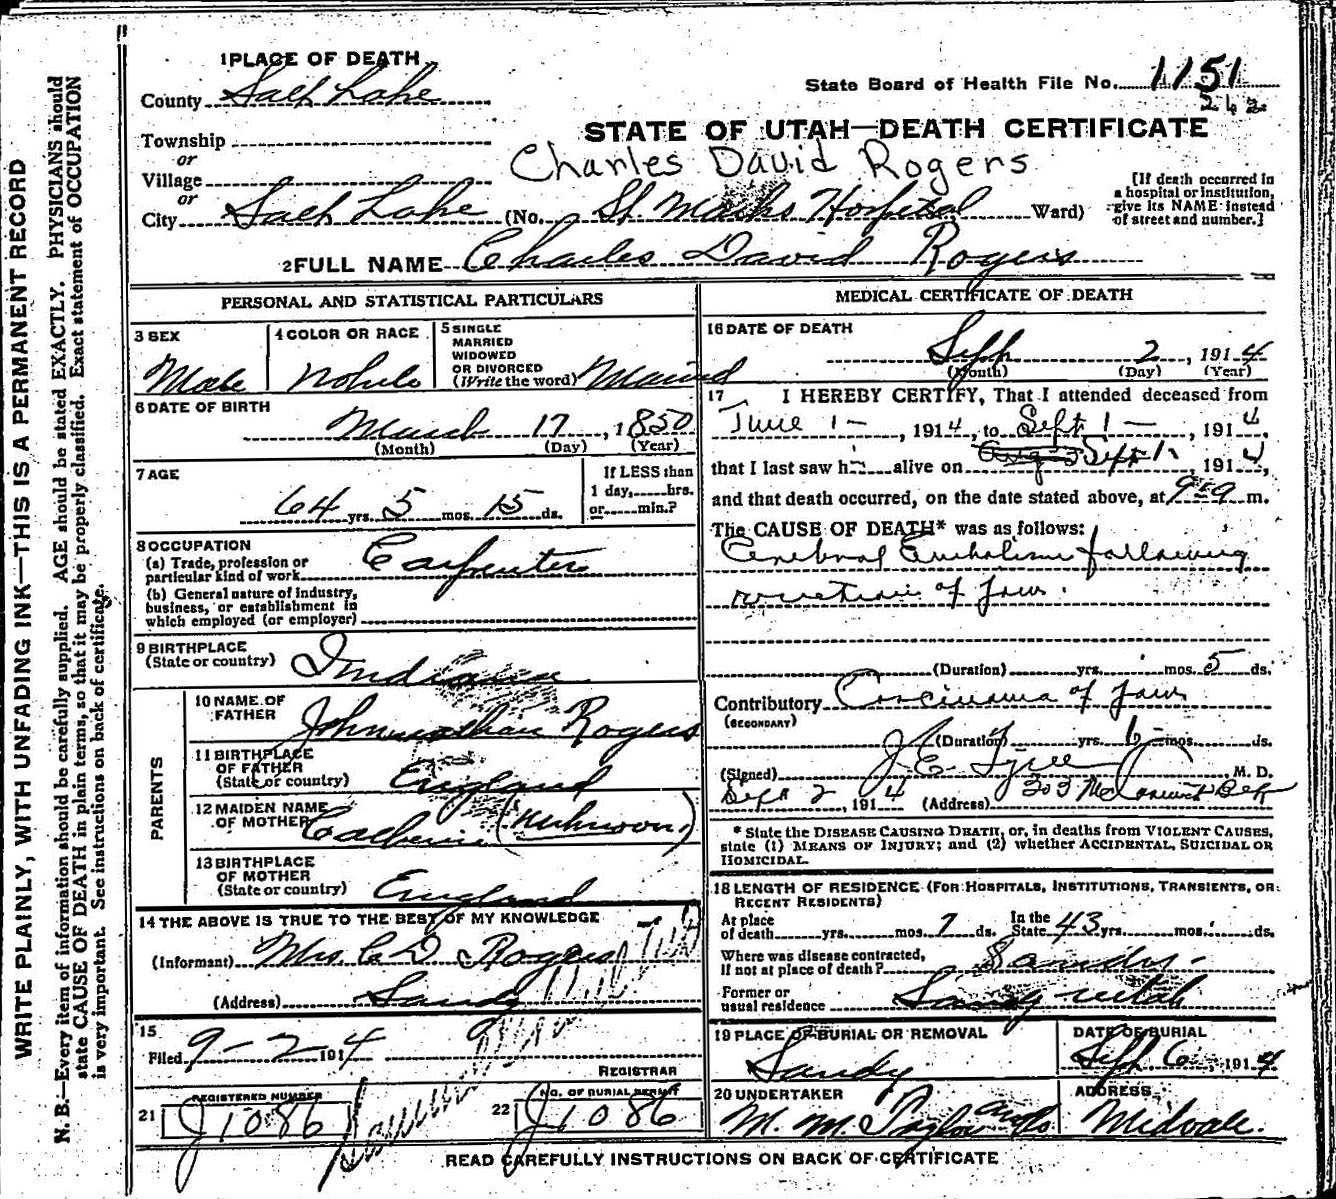 WRITE PLAINLY, WITH UNFADING INK—THIS IS A PERMANENT RECORD
N. B.—Every item of information should be carefully supplied. AGE should be stated EXACTLY. PHYSICIANS should
state CAUSE OF DEATH in plain terms, so that it may be properly classified. Exact statement of OCCUPATION
is very important. See instructions on back of certificate.
1 PLACE OF DEATH
County Salt Lake
State Board of Health File No. 1151
262
Township
or
Village
or
STATE OF UTAH—DEATH CERTIFICATE
Charles David Rogers
City Salt Lake (No. St Marks Hospital Ward)
[If death occurred in
a hospital or institution,
give its NAME instead
of street and number.]
2 FULL NAME Charles David Rogers
PERSONAL AND STATISTICAL PARTICULARS
3 SEX
Male
4 COLOR OR RACE
White
5 SINGLE
MARRIED
WIDOWED
OR DIVORCED
(Write the word) Married
6 DATE OF BIRTH
March 17, 1850
(Month) (Day) (Year)
7 AGE
64 yrs. 5 mos. 15 ds.
If LESS than
1 day, hrs.
or min.?
8 OCCUPATION
(a) Trade, profession or
particular kind of work Carpenter
(b) General nature of industry,
business, or establishment in
which employed (or employer)
9 BIRTHPLACE
(State or country) Indiana
PARENTS
10 NAME OF
FATHER Johnnathan Rogers
11 BIRTHPLACE
OF FATHER
(State or country) England
12 MAIDEN NAME
OF MOTHER Catherine
13 BIRTHPLACE
OF MOTHER
(State or country) England
14 THE ABOVE IS TRUE TO THE BEST OF MY KNOWLEDGE
(Informant) Mrs. C D Rogers
(Address) Sandy
15
Filed 9-2 1914
REGISTRAR
REGISTERED NUMBER
21 J1086
NO. OF BURIAL PERMIT
22 J1086
MEDICAL CERTIFICATE OF DEATH
16 DATE OF DEATH
Sept 2, 1914
(Month) (Day) (Year)
17 I HEREBY CERTIFY, That I attended deceased from
June 1 —, 1914, to Sept 1 —, 1914,
that I last saw h alive on Sept 1, 1914,
and that death occurred, on the date stated above, at m.
The CAUSE OF DEATH* was as follows:
Cerebral Embolism following
resection of Jaw.
(Duration) yrs. mos. 5 ds.
Contributory Carcinoma of Jaw
(SECONDARY)
(Duration) yrs. 6 mos. ds.
(Signed) J. E. Tyree M. D.
Sept 2, 1914 (Address) 303
* State the DISEASE CAUSING DEATH, or, in deaths from VIOLENT CAUSES,
state (1) MEANS OF INJURY; and (2) whether ACCIDENTAL, SUICIDAL OR
HOMICIDAL.
18 LENGTH OF RESIDENCE (FOR HOSPITALS, INSTITUTIONS, TRANSIENTS, OR
RECENT RESIDENTS)
At place
of death yrs. mos. 7 ds.
In the
State 43 yrs. mos. ds.
Where was disease contracted,
if not at place of death? Sandy
Former or
usual residence Sandy Utah
19 PLACE OF BURIAL OR REMOVAL
Sandy
DATE OF BURIAL
Sept 6, 1914
20 UNDERTAKER
M. M.
ADDRESS
Midvale.
READ CAREFULLY INSTRUCTIONS ON BACK OF CERTIFICATE